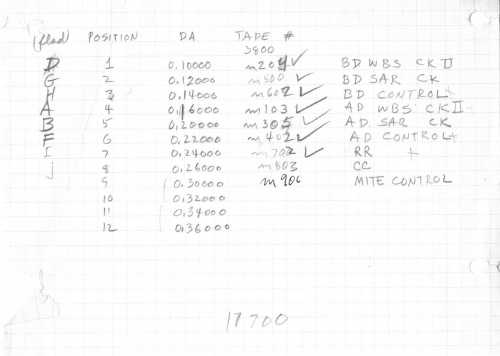 (flad) POSITION DA TAPE #
3800
D 1 0.10000 m204 ✓ BD WBS CK II
G 2 0.12000 m500 ✓ BD SAR CK
H 3 0.14000 m602 ✓ BD CONTROL+
A 4 0.16000 m103 ✓ AD WBS CK II
B 5 0.20000 m305 ✓ AD SAR CK
F 6 0.22000 m402 ✓ AD CONTROL+
I 7 0.24000 m702 ✓ RR +
j 8 0.26000 m803 CC
9 0.30000 m906 MITE CONTROL
10 0.32000
11 0.34000
12 0.36000
17700